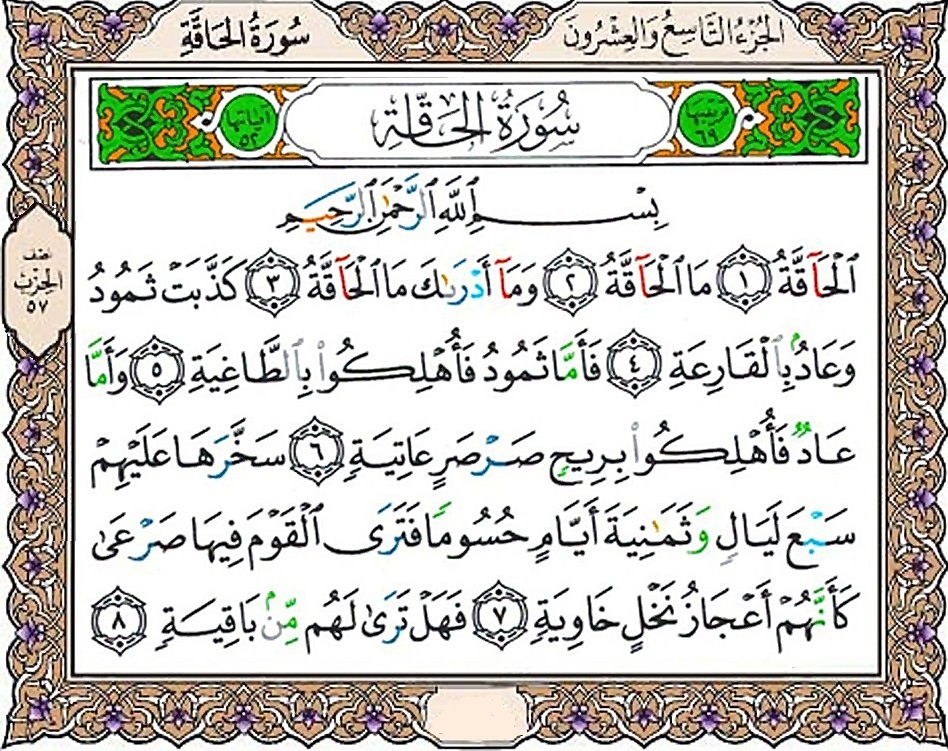 الجُزْءُ التَّاسِعُ وَالعِشْرُونَ
سُورَةُ الحَاقَّةِ
ترتيبها ٦٩
سُورَةُ الحَاقَّةِ
آياتها ٥٢
بِسْمِ ٱللَّهِ ٱلرَّحْمَٰنِ ٱلرَّحِيمِ
ٱلْحَآقَّةُ ١ مَا ٱلْحَآقَّةُ ٢ وَمَآ أَدْرَىٰكَ مَا ٱلْحَآقَّةُ ٣ كَذَّبَتْ ثَمُودُ
وَعَادُۢ بِٱلْقَارِعَةِ ٤ فَأَمَّا ثَمُودُ فَأُهْلِكُوا۟ بِٱلطَّاغِيَةِ ٥ وَأَمَّا
عَادٌ فَأُهْلِكُوا۟ بِرِيحٍ صَرْصَرٍ عَاتِيَةٍ ٦ سَخَّرَهَا عَلَيْهِمْ
سَبْعَ لَيَالٍ وَثَمَٰنِيَةَ أَيَّامٍ حُسُومًا فَتَرَى ٱلْقَوْمَ فِيهَا صَرْعَىٰ
كَأَنَّهُمْ أَعْجَازُ نَخْلٍ خَاوِيَةٍ ٧ فَهَلْ تَرَىٰ لَهُم مِّنۢ بَاقِيَةٍ ٨
نصف
الحِزْب
٥٧